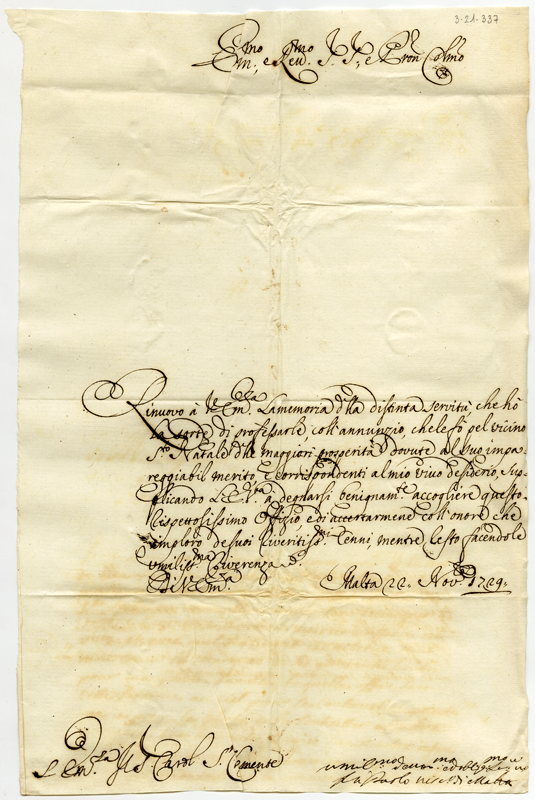 3-21-337
Em:mo e Rev:mo S:r S:r, e Pron Col:mo
Rinuovo à V:Em:za La memoria d:lla distinta servitù, che hò
la sorte di professarle, coll'annunzio, che le fò pel vicino
S:to Natale d:lle maggiori prosperità dovute al suo impa-
reggiabil merito, e corrispondenti al mio vivo desiderio, Sup-
plicando L'E:V:ra a degnarsi benignam:te accogliere questo
Rispettosissimo Offizio, e di accertarmene coll'onore che
imploro de suoi Riveritiss:mi Cenni, mentre Resto facendole
Umiliss:ma Riverenza
Di V:Em:za Malta 22. Nov:e 1729.
S:r Card:l S:n Clemente
fra Paolo di Malta